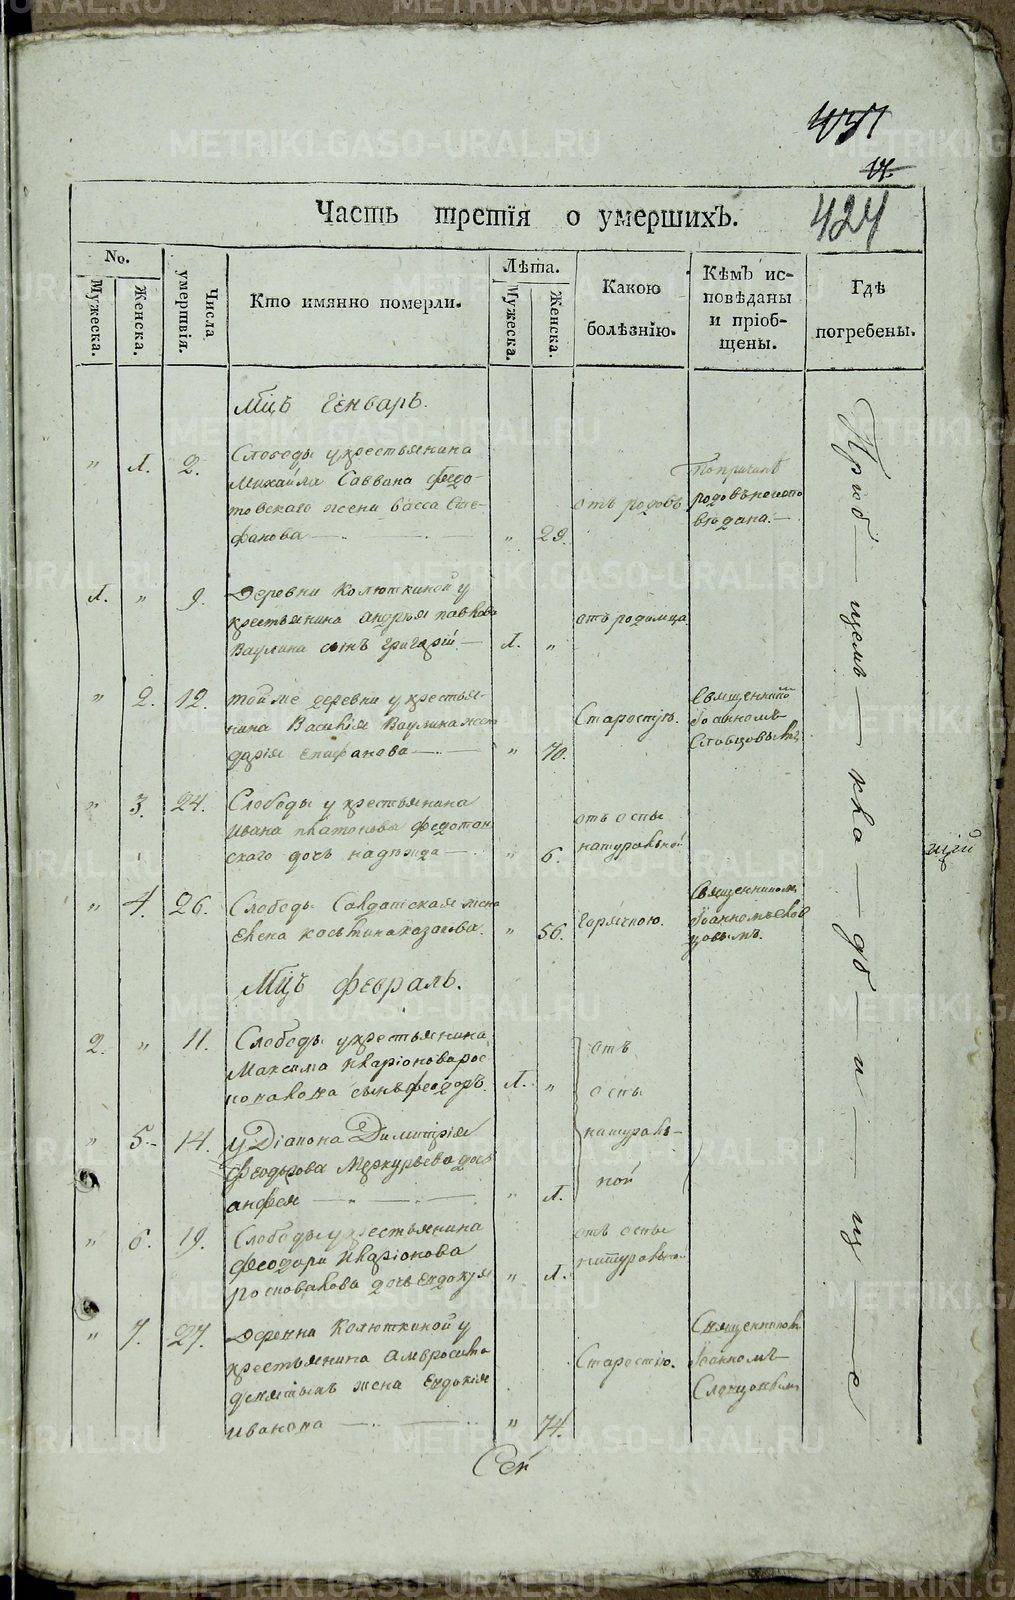 424
Часть третія о умершихъ.
No.
Мужеска.
Женска.
Числа умертвія.
Кто имянно померли.
Лѣта.
Мужеска.
Женска.
Какою болѣзнію.
Кѣмъ ис-
повѣданы
и пріоб-
щены.
Гдѣ
погребены.
Мцъ Генварь.
" 1. 2. Слободы у крестьянина
Михайла Саввина Федо-
товскаго жена Васса Сте-
фанова " 29.
отъ родовъ
По причинѣ
родовъ не испо
вѣдана.
1. " 9. Деревни Колюткиной у
крестьянина Андрея Павлова
Ваулина сынъ Григорій 1. "
отъ родимца
" 2. 12. Той же деревни у крестья-
нина Василія Ваулина жена
Дарія Епифанова " 70.
Старостію.
Священникомъ
Іоанномъ
Словцовымъ
" 3. 24. Слободы у крестьянина
Ивана Платонова Федотов
скаго дочь Надежда " 6.
отъ оспы
натуральной
" 4. 26. Слободы Салдатская жена
Елена Костина Казакова. " 56.
Горячкою.
Священникомъ
Іоанномъ Слов
цовымъ.
Мцъ Февраль.
2. " 11. Слободы у крестьянина
Максима Иларіонова Рос
попалова сынъ Феодоръ. 1. "
" 5. 14. У Діакона Димитрія
Феодорова Меркурьева дочь
Анфея " 1.
отъ
оспы
натураль-
ной
" 6. 19. Слободы у крестьянина
Феодора Иларіонова
Роспопалова дочь Евдокія " 1.
отъ оспы
натуральной
" 7. 27. Деревни Колюткиной у
крестьянина Амвросила
Девятыхъ жена Евдокія
Иванова " 74.
Старостію.
Священникомъ
Іоанномъ
Словцовымъ
При цемъ кла дб и щ е